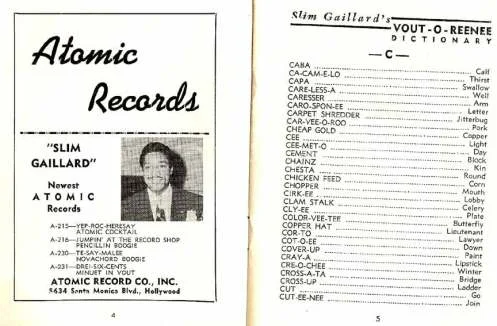 Atomic
Records
"SLIM
GAILLARD"
Newest
ATOMIC
Records
A-215—YEP-ROC-HERESAY
ATOMIC COCKTAIL
A-216—JUMPIN' AT THE RECORD SHOP
PENCILLIN BOOGIE
A-230—TE-SAY-MALEE
NOVACHORD BOOGIE
A-231—DREI-SIX-CENTS
MINUET IN VOUT
ATOMIC RECORD CO., INC.
5634 Santa Monica Blvd., Hollywood
4
Slim Gaillard's
VOUT-O-REENEE
DICTIONARY
— C —
CABA Calf
CA-CAM-E-LO Thirst
CAPA Swallow
CARE-LESS-A Well
CARESSER Arm
CARO-SPON-EE Letter
CARPET SHREDDER Jitterbug
CAR-VEE-O-ROO Pork
CHEAP GOLD Copper
CEE Light
CEE-MET-O Day
CEMENT Block
CHAINZ Kin
CHESTA Round
CHICKEN FEED Corn
CHOPPER Mouth
CIRK-EE Lobby
CLAM STALK Celery
CLY-EE Plate
COLOR-VEE-TEE Butterfly
COPPER HAT Lieutenant
COR-TO Lawyer
COT-O-EE Down
COVER-UP Paint
CRAY-A Lipstick
CRE-O-CHEE Winter
CROSS-A-TA Bridge
CROSS-UP Ladder
CUT Go
CUT-EE-NEE Join
5